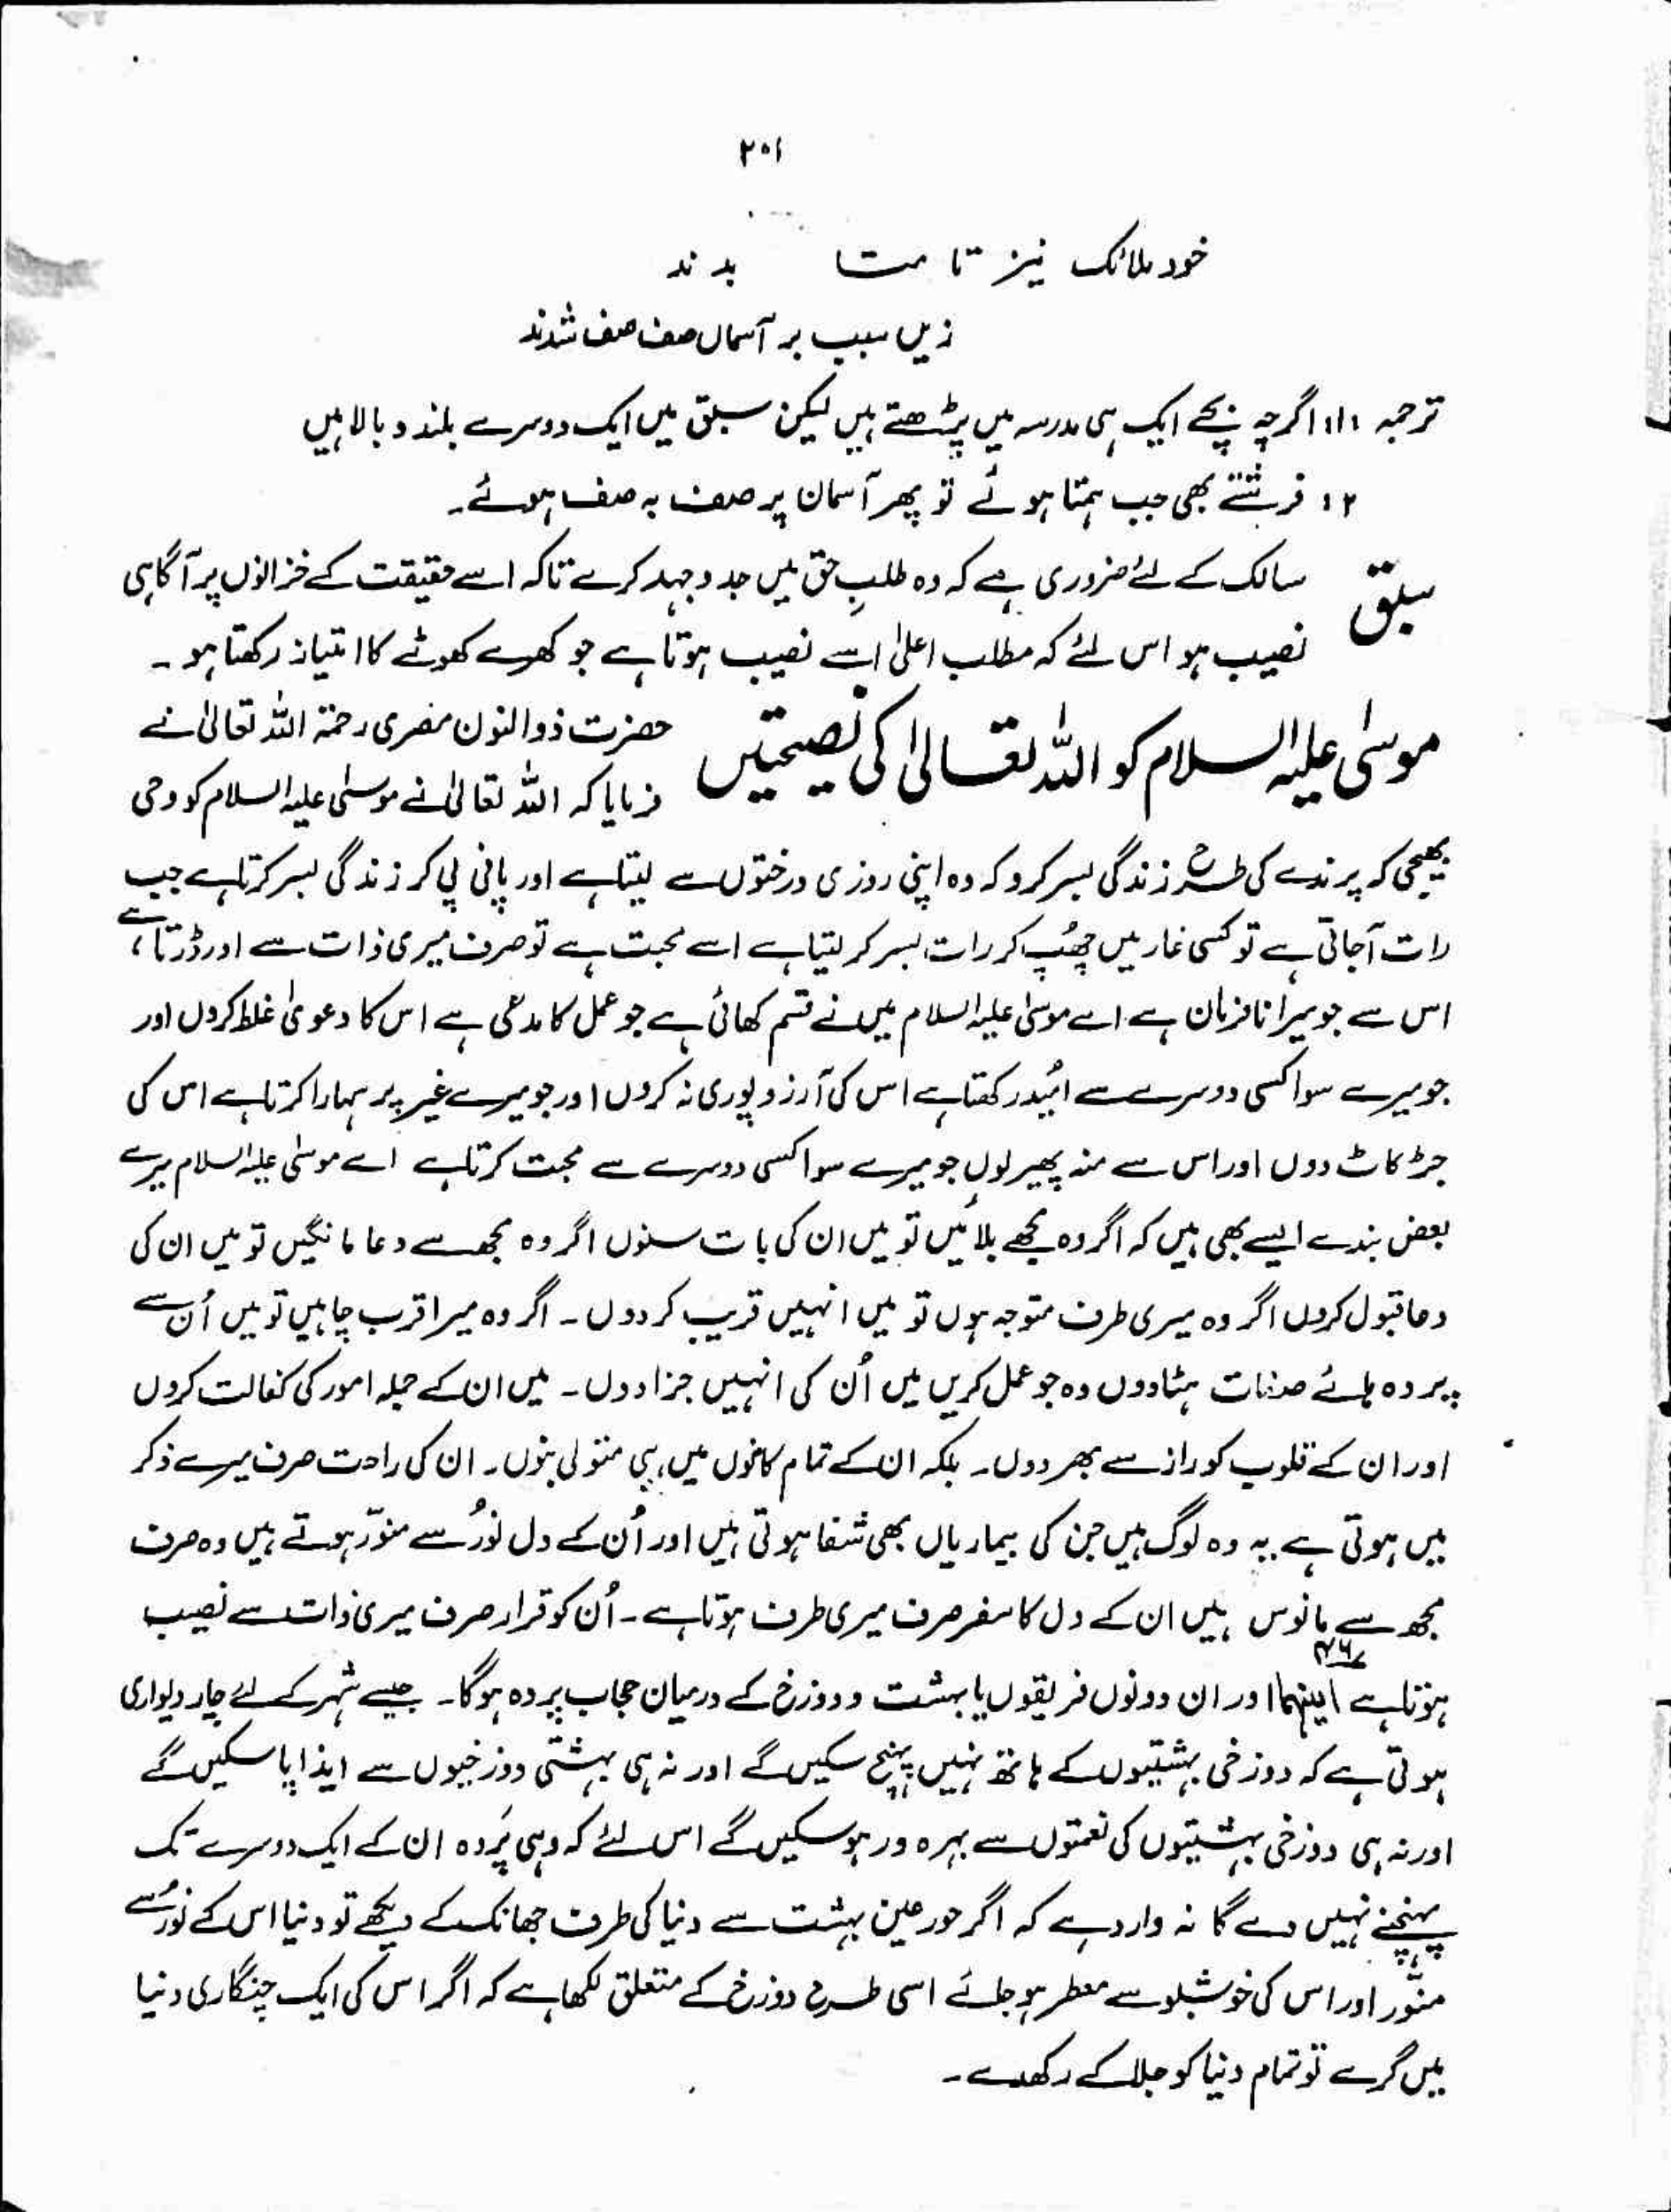 ۲۰۱
خود ملائک نیز تا متا بدند
زیں سبب بر آسماں صف صف شدند
ترجمہ ۱۱: اگرچہ بچے ایک ہی مدرسہ میں پڑھتے ہیں لیکن سبق میں ایک دوسرے بلند و بالا ہیں
۱۲ فرشتے بھی جب ہمتا ہوئے تو پھر آسمان پر صف بہ صف ہوئے۔
سبق سالک کے لئے ضروری ہے کہ وہ طلبِ حق میں جد و جہد کرے تاکہ اسے حقیقت کے خزانوں پر آگاہی
نصیب ہو اس لئے کہ مطلب اعلیٰ اسے نصیب ہوتا ہے جو کھرے کھوٹے کا امتیاز رکھتا ہو۔
موسیٰ علیہ السلام کو اللہ تعالیٰ کی نصیحتیں حضرت ذوالنون مصری رحمۃ اللہ تعالیٰ نے
فرمایا کہ اللہ تعالیٰ نے موسیٰ علیہ السلام کو وحی
بھیجی کہ پرندے کی طرح زندگی بسر کرو کہ وہ اپنی روزی درختوں سے لیتا ہے اور پانی پی کر زندگی بسر کرتا ہے جب
رات آجاتی ہے تو کسی غار میں چھُپ کر رات بسر کر لیتا ہے اسے محبت ہے تو صرف میری ذات سے اور ڈرتا ہے
اس سے جو میرا نافرمان ہے اے موسیٰ علیہ السلام میں نے قسم کھائی ہے جو عمل کا مدعی ہے اس کا دعویٰ غلط کروں اور
جو میرے سوا کسی دوسرے سے امُید رکھتا ہے اس کی آرزو پوری نہ کروں اور جو میرے غیر پر سہارا کرتا ہے اس کی
جڑ کاٹ دوں اور اس سے منہ پھیر لوں جو میرے سوا کسی دوسرے سے محبت کرتا ہے اے موسیٰ علیہ السلام میرے
بعض بندے ایسے بھی ہیں کہ اگر وہ مجھے بلائیں تو میں ان کی بات سنوں اگر وہ مجھ سے دعا مانگیں تو میں ان کی
دعا قبول کروں اگر وہ میری طرف متوجہ ہوں تو میں انہیں قریب کردوں۔ اگر وہ میرا قرب چاہیں تو میں اُن سے
پردہ ہائے صفات ہٹادوں وہ جو عمل کریں میں اُن کی انہیں جزا دوں۔ میں ان کے جملہ امور کی کفالت کروں
اور ان کے قلوب کو راز سے بھر دوں۔ بلکہ ان کے تمام کاموں میں ہی متولی بنوں۔ ان کی راحت صرف میرے ذکر
میں ہوتی ہے یہ وہ لوگ ہیں جن کی بیماریاں بھی شفا ہوتی ہیں اور اُن کے دل نورُ سے منوّر ہوتے ہیں وہ صرف
مجھ سے مانوس ہیں ان کے دل کا سفر صرف میری طرف ہوتا ہے۔ اُن کو قرار صرف میری ذات سے نصیب
ہوتا ہے ابینہما اور ان دونوں فریقوں یا بہشت و دوزخ کے درمیان حجاب پردہ ہوگا۔ جیسے شہر کے لئے چار دیواری
ہوتی ہے کہ دوزخی بہشتیوں کے ہاتھ نہیں پہنچ سکیں گے اور نہ ہی بہشتی دوزخیوں سے ایذا پا سکیں گے
اور نہ ہی دوزخی بہشتیوں کی نعمتوں سے بہرہ ور ہوسکیں گے اس لئے کہ وہی پرَدہ ان کے ایک دوسرے تک
پہنچنے نہیں دے گا نہ وارد ہے کہ اگر حور عین بہشت سے دنیا کی طرف جھانک کے دیکھے تو دنیا اس کے نورُ سے
منّور اور اس کی خوشبو سے معطر ہوجائے اسی طرح دوزخ کے متعلق لکھا ہے کہ اگر اس کی ایک چنگاری دنیا
میں گرے تو تمام دنیا کو جلا کے رکھدے۔